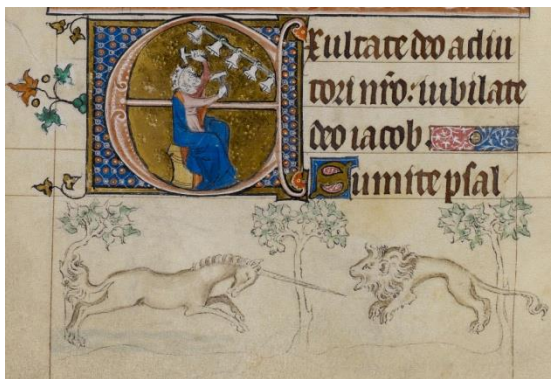 Exultate deo adiu
tori nr̄o: iubilate
deo iacob.
Sumite psal